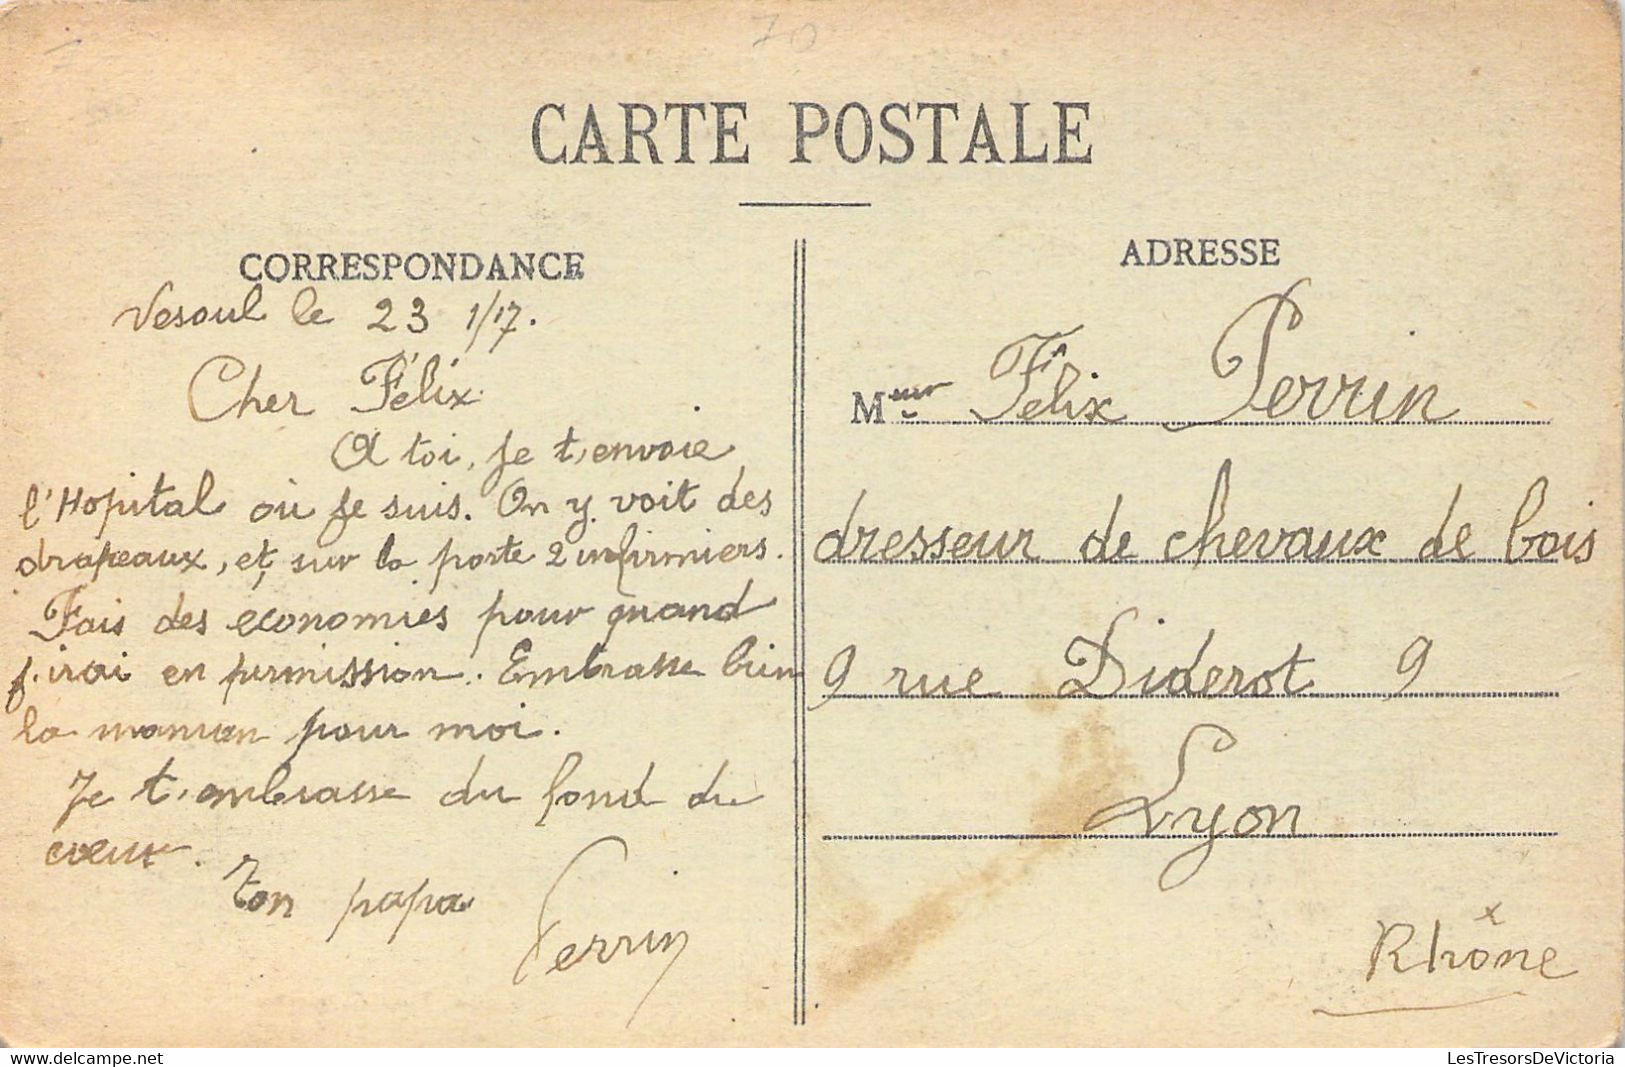 70
CARTE POSTALE
CORRESPONDANCE
Vesoul le 23 1/17.
Cher Félix
A toi, je t'envoie
l'Hopital où je suis. On y voit des
drapeaux, et sur la porte 2 infirmiers.
Fais des économies pour quand
j'irai en permission. Embrasse bien
la maman pour moi.
Je t'embrasse du fond du
cœur.
Ton papa
Perrin
ADRESSE
Meur Félix Perrin
dresseur de chevaux de bois
9 rue Diderot 9
Lyon
Rhône
www.delcampe.net
LesTresorsDeVictoria